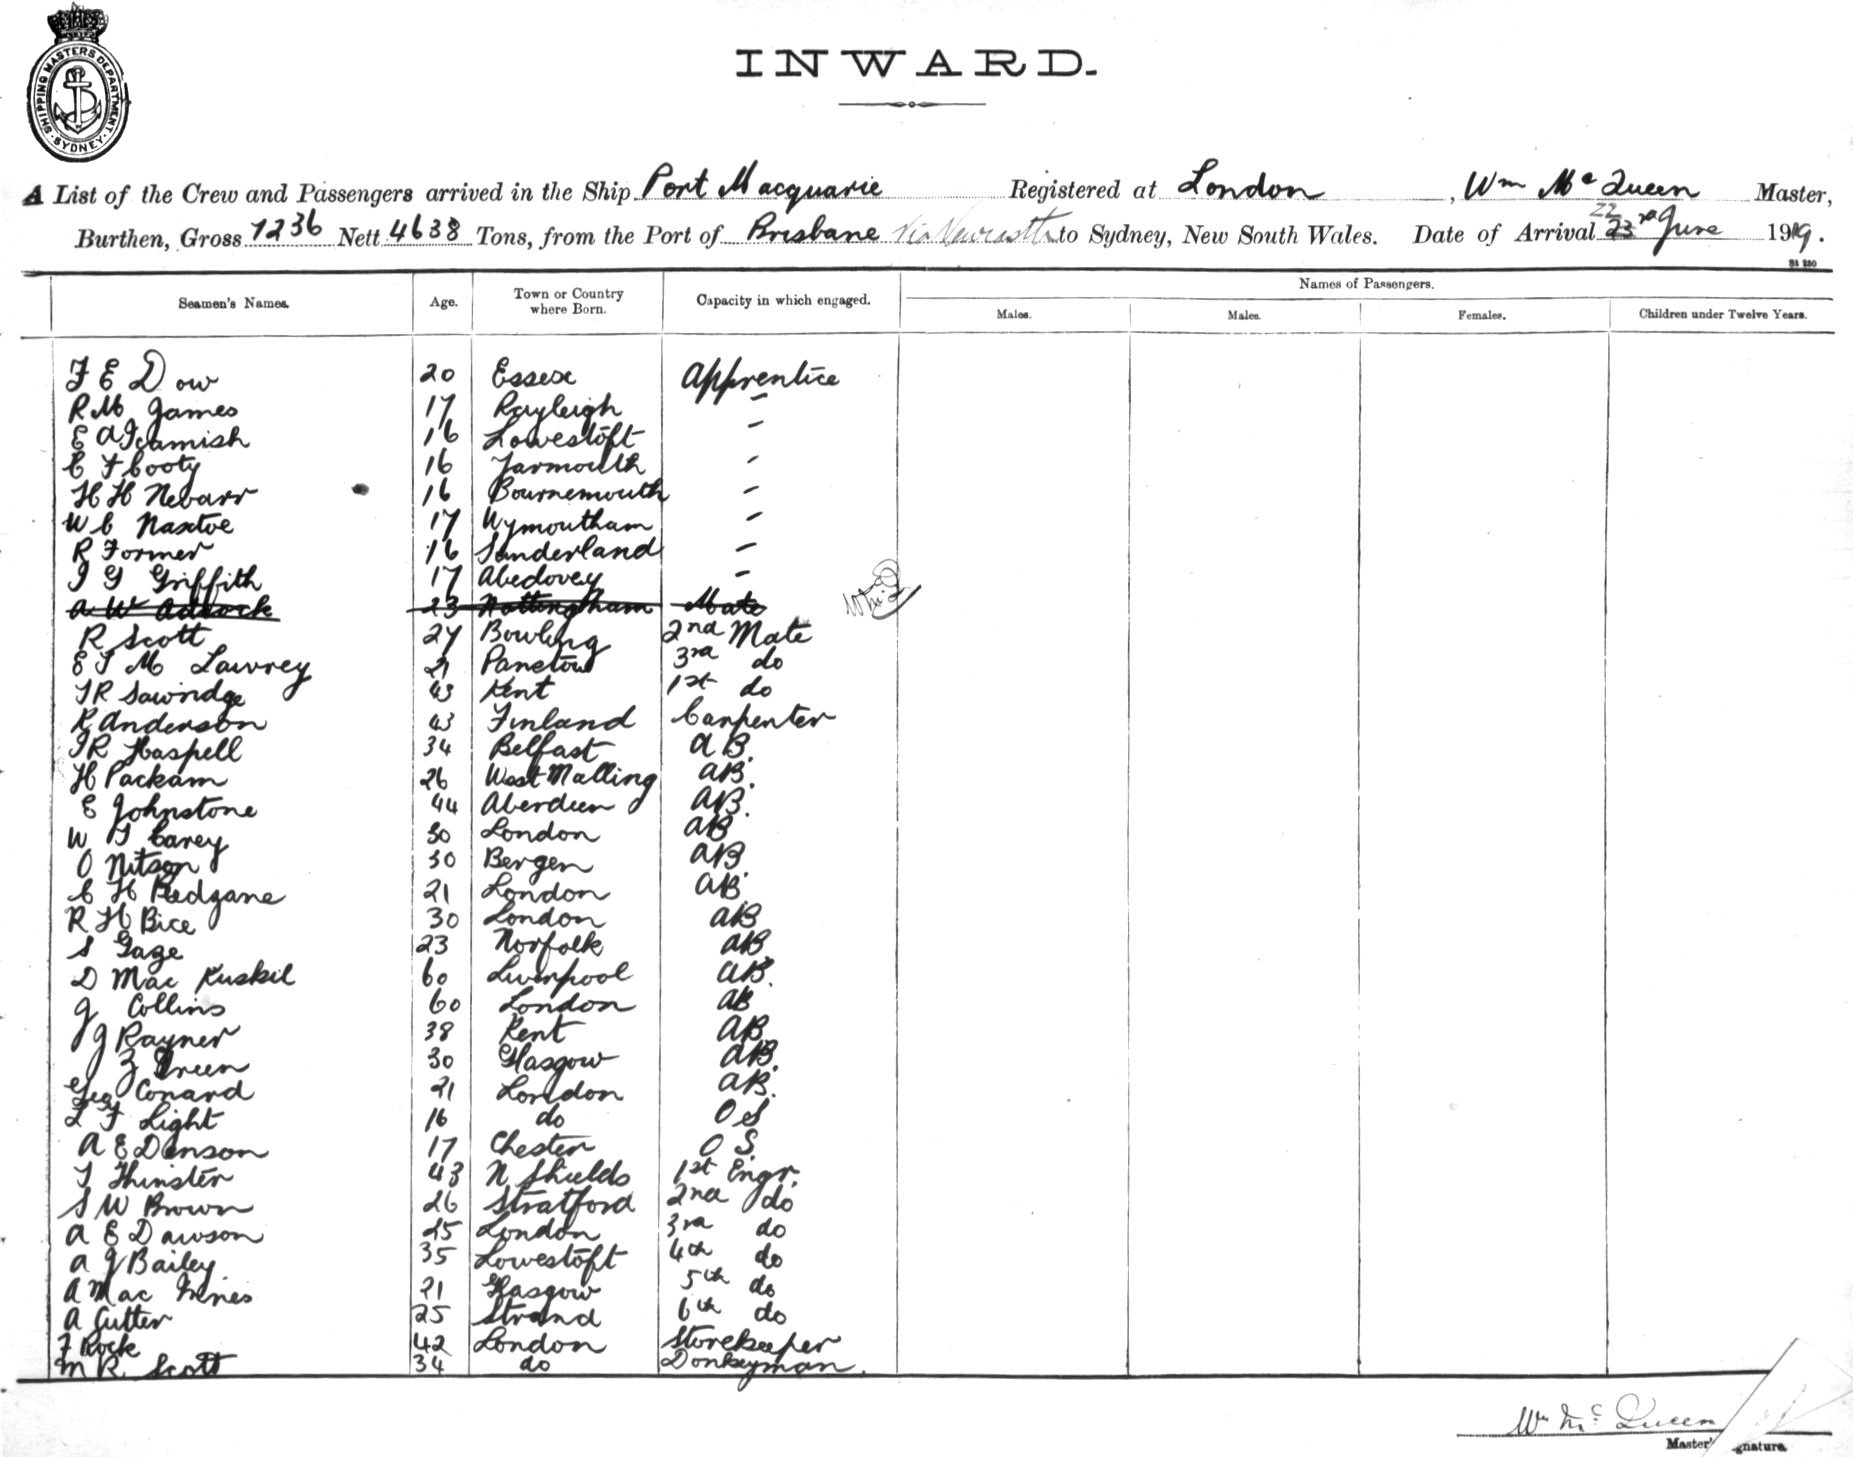 SHIPPING MASTERS DEPARTMENT. SYDNEY.
INWARD.
A List of the Crew and Passengers arrived in the Ship Port Macquarie Registered at London, Wm McQueen Master,
Burthen, Gross 7236 Nett 4638 Tons, from the Port of Brisbane via Newcastle to Sydney, New South Wales. Date of Arrival 22 23rd June 1919.
St 250
Seamen's Names. Age. Town or Country where Born. Capacity in which engaged. Names of Passengers.
Males. Males. Females. Children under Twelve Years.
F E Dow 20 Essex Apprentice
R M James 17 Rayleigh -
E A 16 Lowestoft -
C F Cooty 16 Yarmouth -
H H Nebarr 16 Bournemouth -
W C Naxtoe 17 Wymoutham -
R Former 16 Sunderland -
I G Griffith 17 Abedovey -
A W Adcock 23 Nottingham Mate
R Scott 27 Bowling 2nd Mate
E T M Lawrey 21 3rd do
T R Sawridge 43 Kent 1st do
R Anderson 43 Finland Carpenter
J R Haspell 34 Belfast A B.
H Packam 26 West Malling AB.
E Johnstone 44 Aberdeen AB.
W T Carey 30 London AB
O Nitson 30 Bergen AB.
C H Redgane 21 London AB
R H Bice 30 London AB
S Gaze 23 Norfolk AB
D Mac Kuskil 60 Liverpool AB.
J Collins 60 London AB
J Rayner 38 Kent AB
Z Green 30 Glasgow AB.
Geo Conard 21 London AB.
L F Light 16 do O S
A E Denson 17 Chester O S.
T Thinster 43 N Shields 1st Engr.
S W Brown 26 Stratford 2nd do
A E Dawson 25 London 3rd do
A J Bailey 35 Lowestoft 4th do
A Mac Innes 21 Glasgow 5th do
A Cutter 25 Strand 6th do
F Rock 42 London Storekeeper
M R Scott 34 do Donkeyman.
Wm McQueen
Master's Signature.